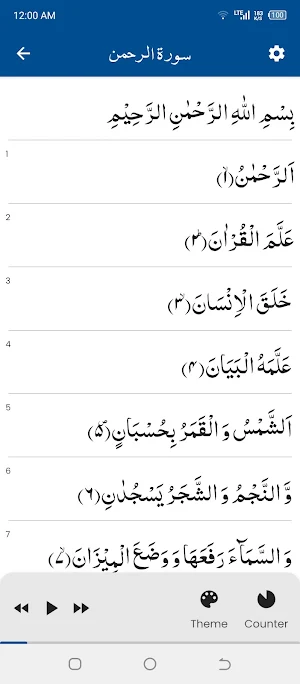 12:00 AM LTE 183 K/S 100
سورة الرحمن
بِسْمِ اللّٰهِ الرَّحْمٰنِ الرَّحِيْمِ
1
اَلرَّحْمٰنُ(۱ۙ)
2
عَلَّمَ الْقُرْاٰنَ(۲ؕ)
3
خَلَقَ الْاِنْسَانَ(۳ۙ)
4
عَلَّمَهُ الْبَيَانَ(۴)
5
اَلشَّمْسُ وَ الْقَمَرُ بِحُسْبَانٍ(۵۪)
6
وَّ النَّجْمُ وَ الشَّجَرُ يَسْجُدٰنِ(۶)
7
وَ السَّمَآءَ رَفَعَهَا وَ وَضَعَ الْمِيْزَانَ(۷ۙ)
Theme Counter